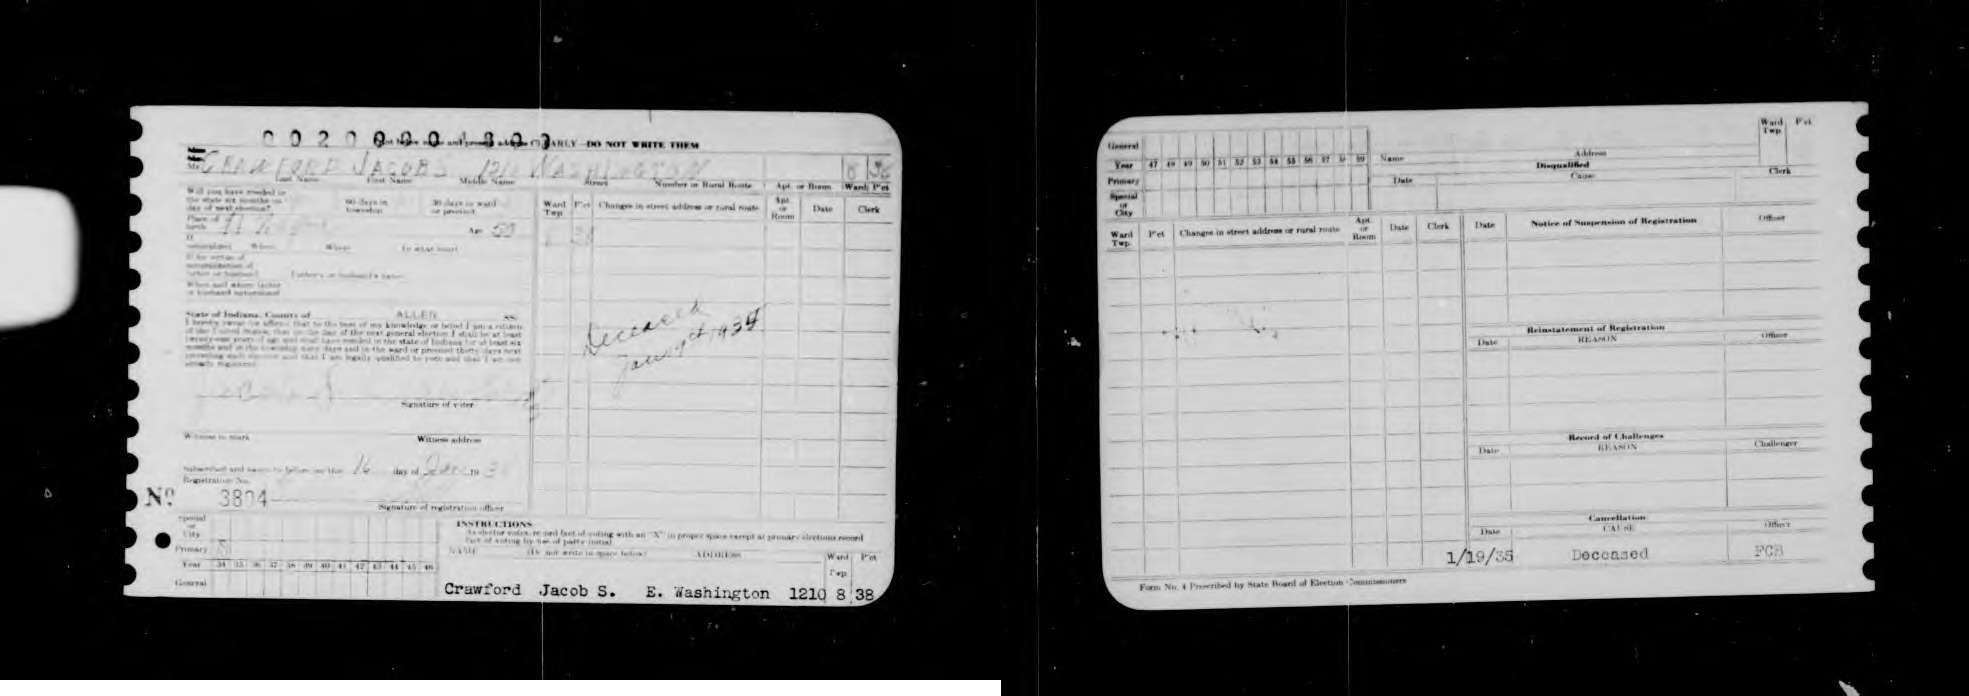 PRINT below name and present address CLEARLY—DO NOT WRITE THEM
CRAWFORD JACOB S 1210 WASHINGTON 8 38
Last Name First Name Middle Name Street Number or Rural Route Apt. or Room Ward P'ct
Will you have resided in
the state six months on 60 days in 30 days in ward
day of next election? township or precinct
Place of
birth Age
If
naturalized When Where In what court
If by virtue of
naturalization of
father or husband Father's or husband's name
When and where father
or husband naturalized
Ward Twp. P'ct Changes in street address or rural route Apt. or Room Date Clerk
38
Deceased
Jan 1934
State of Indiana, County of ALLEN ss:
I hereby swear (or affirm) that to the best of my knowledge or belief I am a citizen
of the United States, that on the date of the next general election I shall be at least
twenty-one years of age and shall have resided in the state of Indiana for at least six
months and in the township sixty days and in the ward or precinct thirty days next
preceding such election and that I am legally qualified to vote and that I am not
already registered.
Signature of voter
Witness to mark Witness address
Subscribed and sworn to before me this 16 day of 19
Registration No.
No 3804
Signature of registration officer
Special
or
City
Primary
Year 34 35 36 37 38 39 40 41 42 43 44 45 46
General
INSTRUCTIONS
As elector votes, record fact of voting with an "X" in proper space except at primary elections record
fact of voting by use of party initial.
NAME (Do not write in space below) ADDRESS Ward Twp. P'ct
Crawford Jacob S. E. Washington 1210 8 38
General
Year 47 48 49 50 51 52 53 54 55 56 57 58 59
Primary
Special
or
City
Name Address Ward Twp. P'ct
Disqualified
Date Cause Clerk
Ward Twp. P'ct Changes in street address or rural route Apt. or Room Date Clerk
Date Notice of Suspension of Registration Officer
Reinstatement of Registration
Date REASON Officer
Record of Challenges
Date REASON Challenger
Cancellation
Date CAUSE Officer
1/19/35 Deceased FCB
Form No. 4 Prescribed by State Board of Election Commissioners